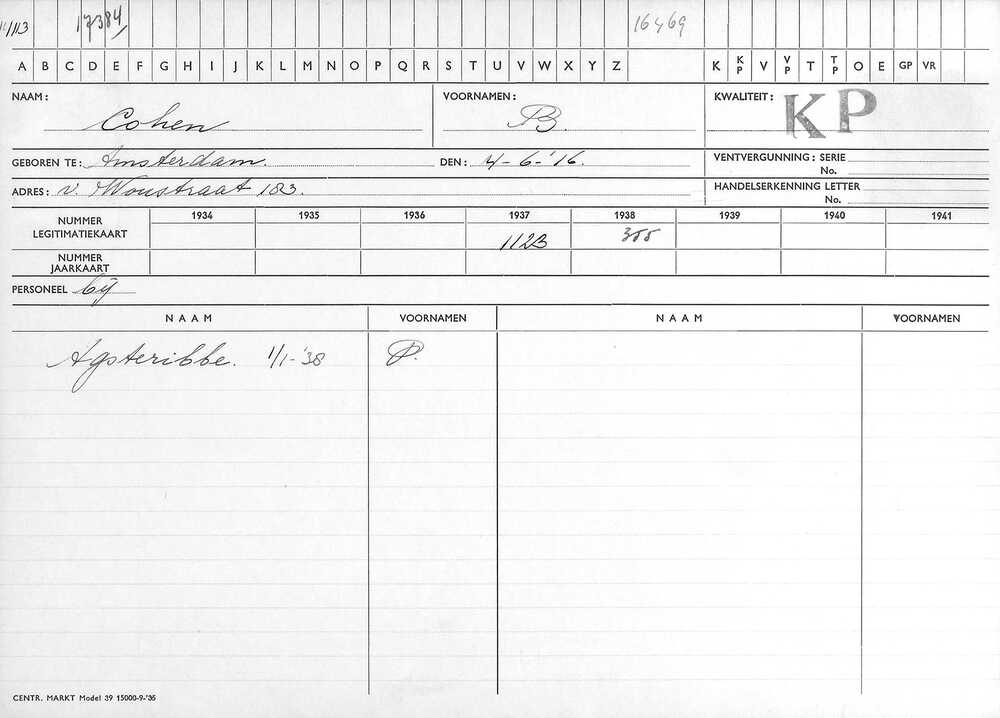 11/113 17384 16469
A B C D E F G H I J K L M N O P Q R S T U V W X Y Z K KP V VP T TP O E GP VR
NAAM: Cohen VOORNAMEN: B. KWALITEIT: KP
GEBOREN TE: Amsterdam. DEN: 4-6-'16. VENTVERGUNNING: SERIE
No.
ADRES: v. Woustraat 183. HANDELSERKENNING LETTER
No.
1934 1935 1936 1937 1938 1939 1940 1941
NUMMER LEGITIMATIEKAART 1123 355
NUMMER JAARKAART
PERSONEEL bij
NAAM VOORNAMEN NAAM VOORNAMEN
Agsteribbe. 1/1-'38 P.
CENTR. MARKT Model 39 15000-9-'35